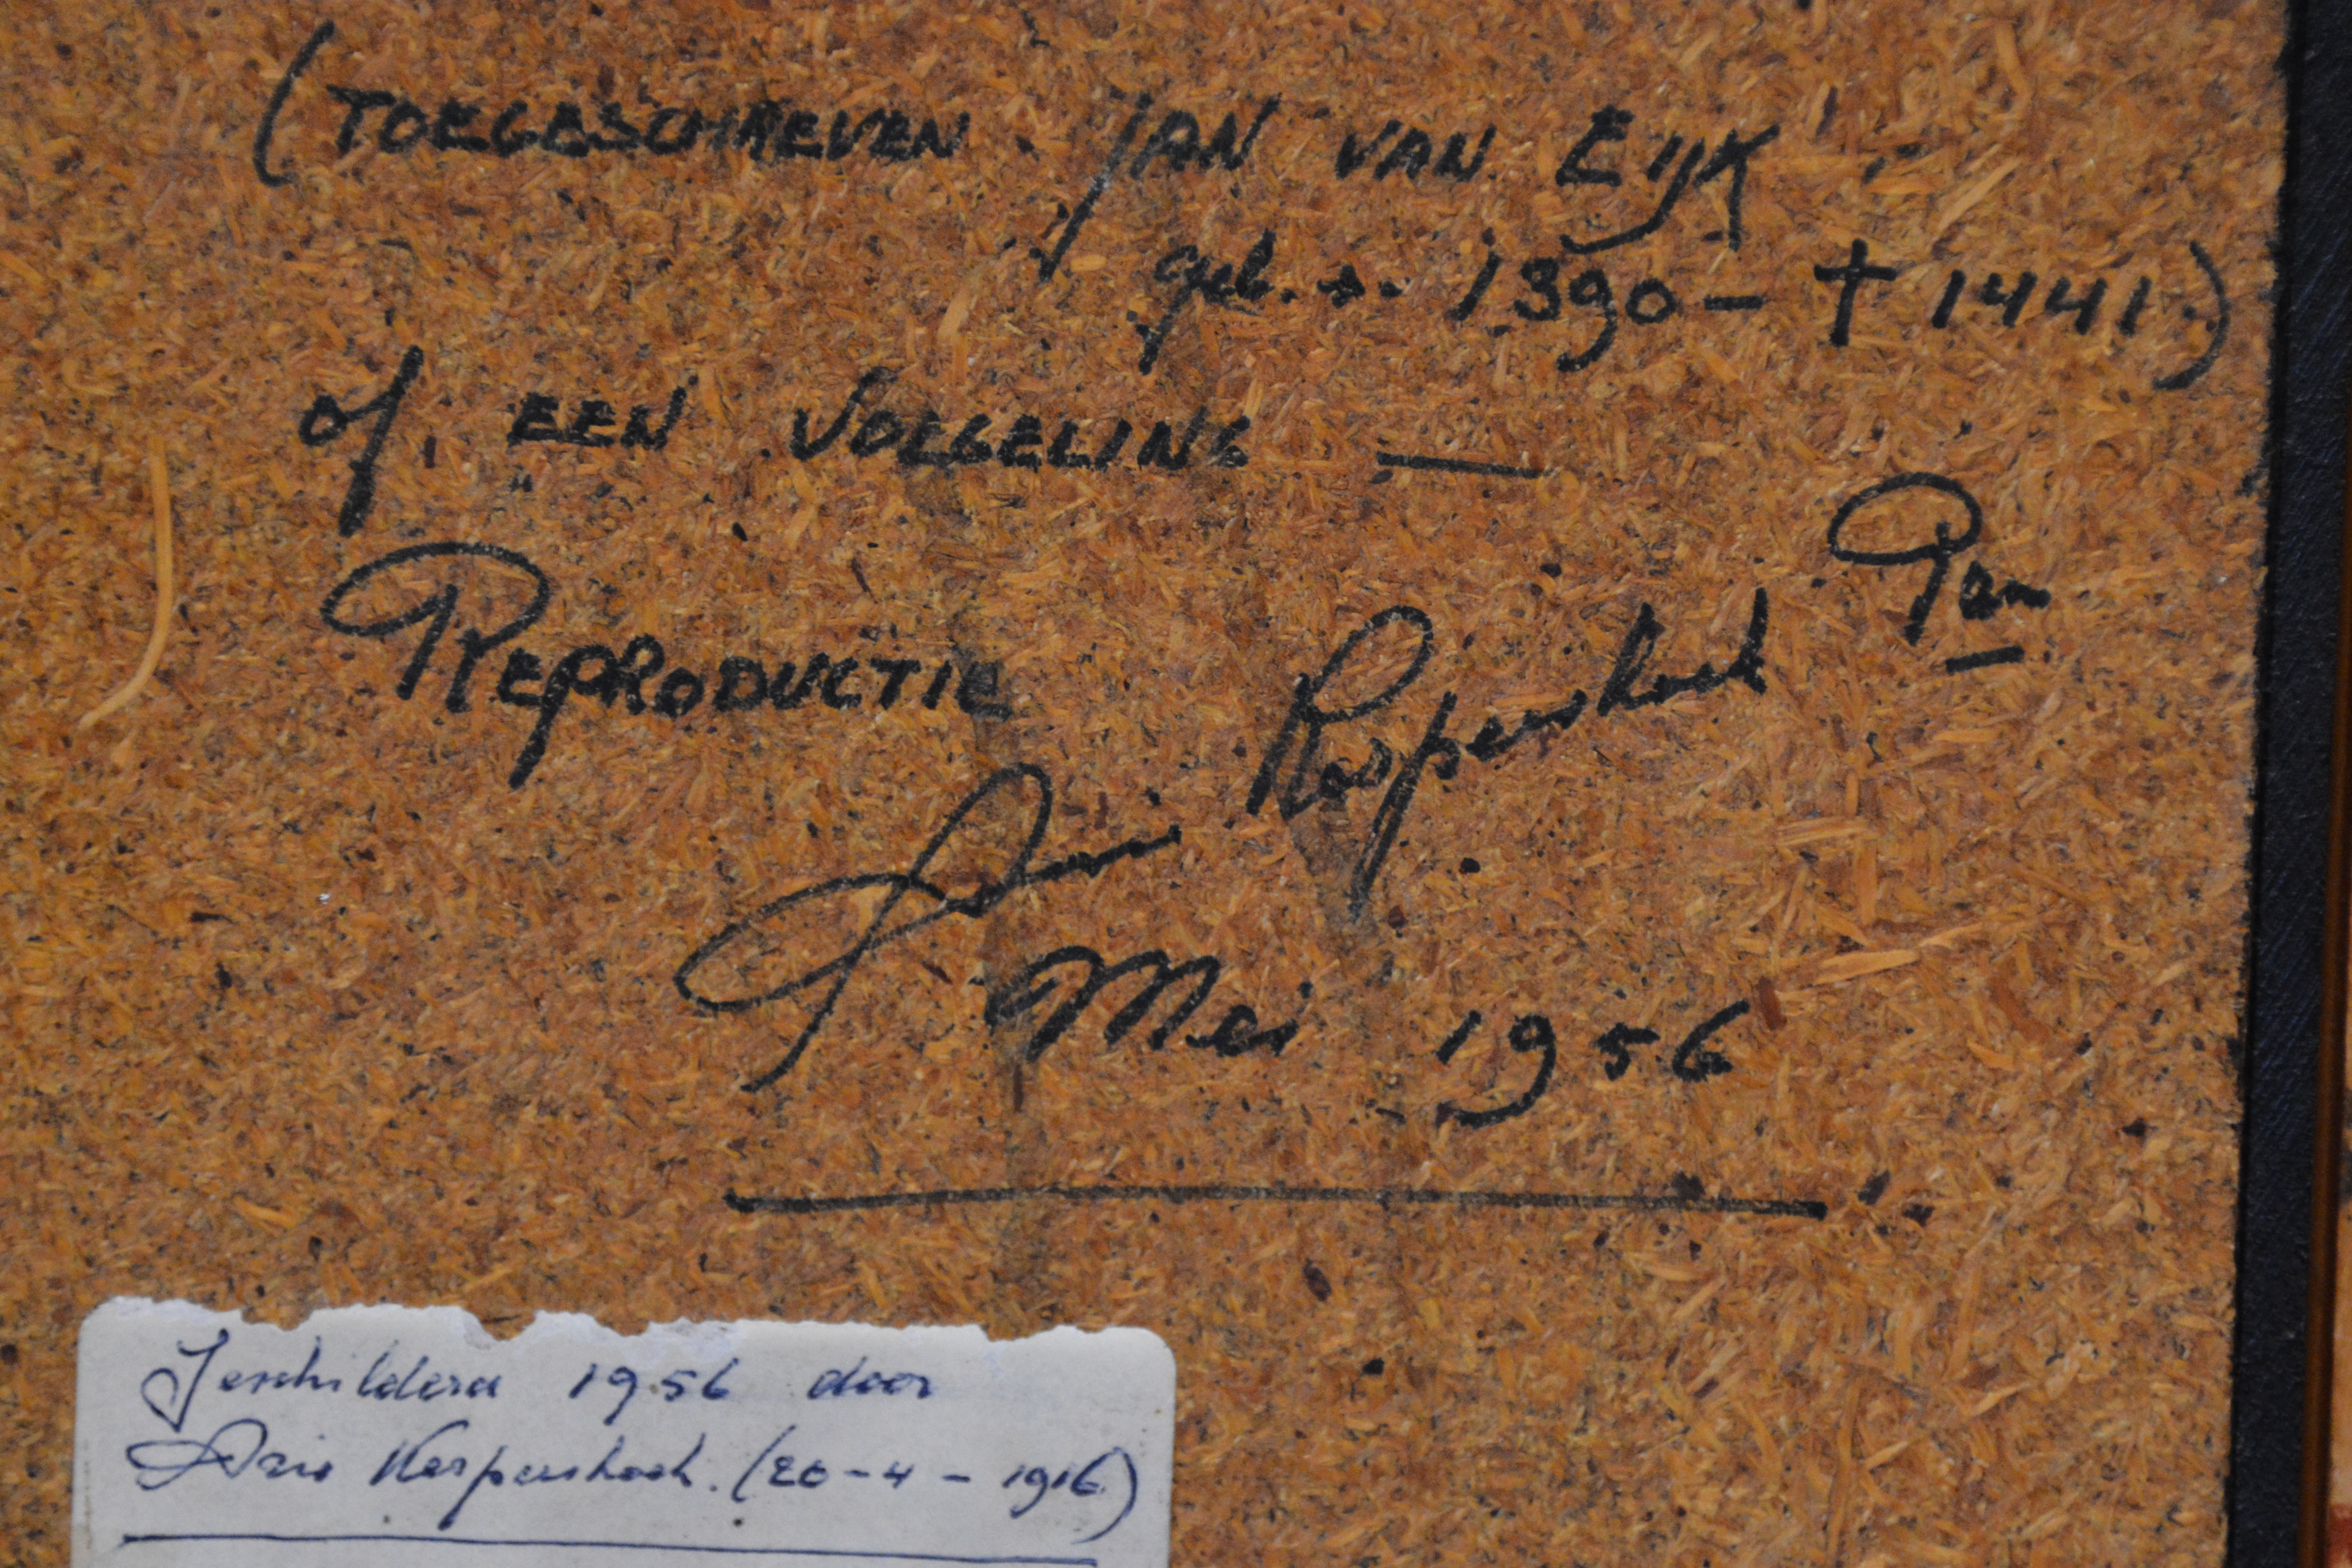 (TOEGESCHREVEN JAN VAN EIJK
geb. ± 1390 - † 1441.)
of EEN VOLGELING —
REPRODUCTIE
Arie Korpershoek
Mei 1956
Geschilderd 1956 door
Arie Korpershoek. (20-4-1916)